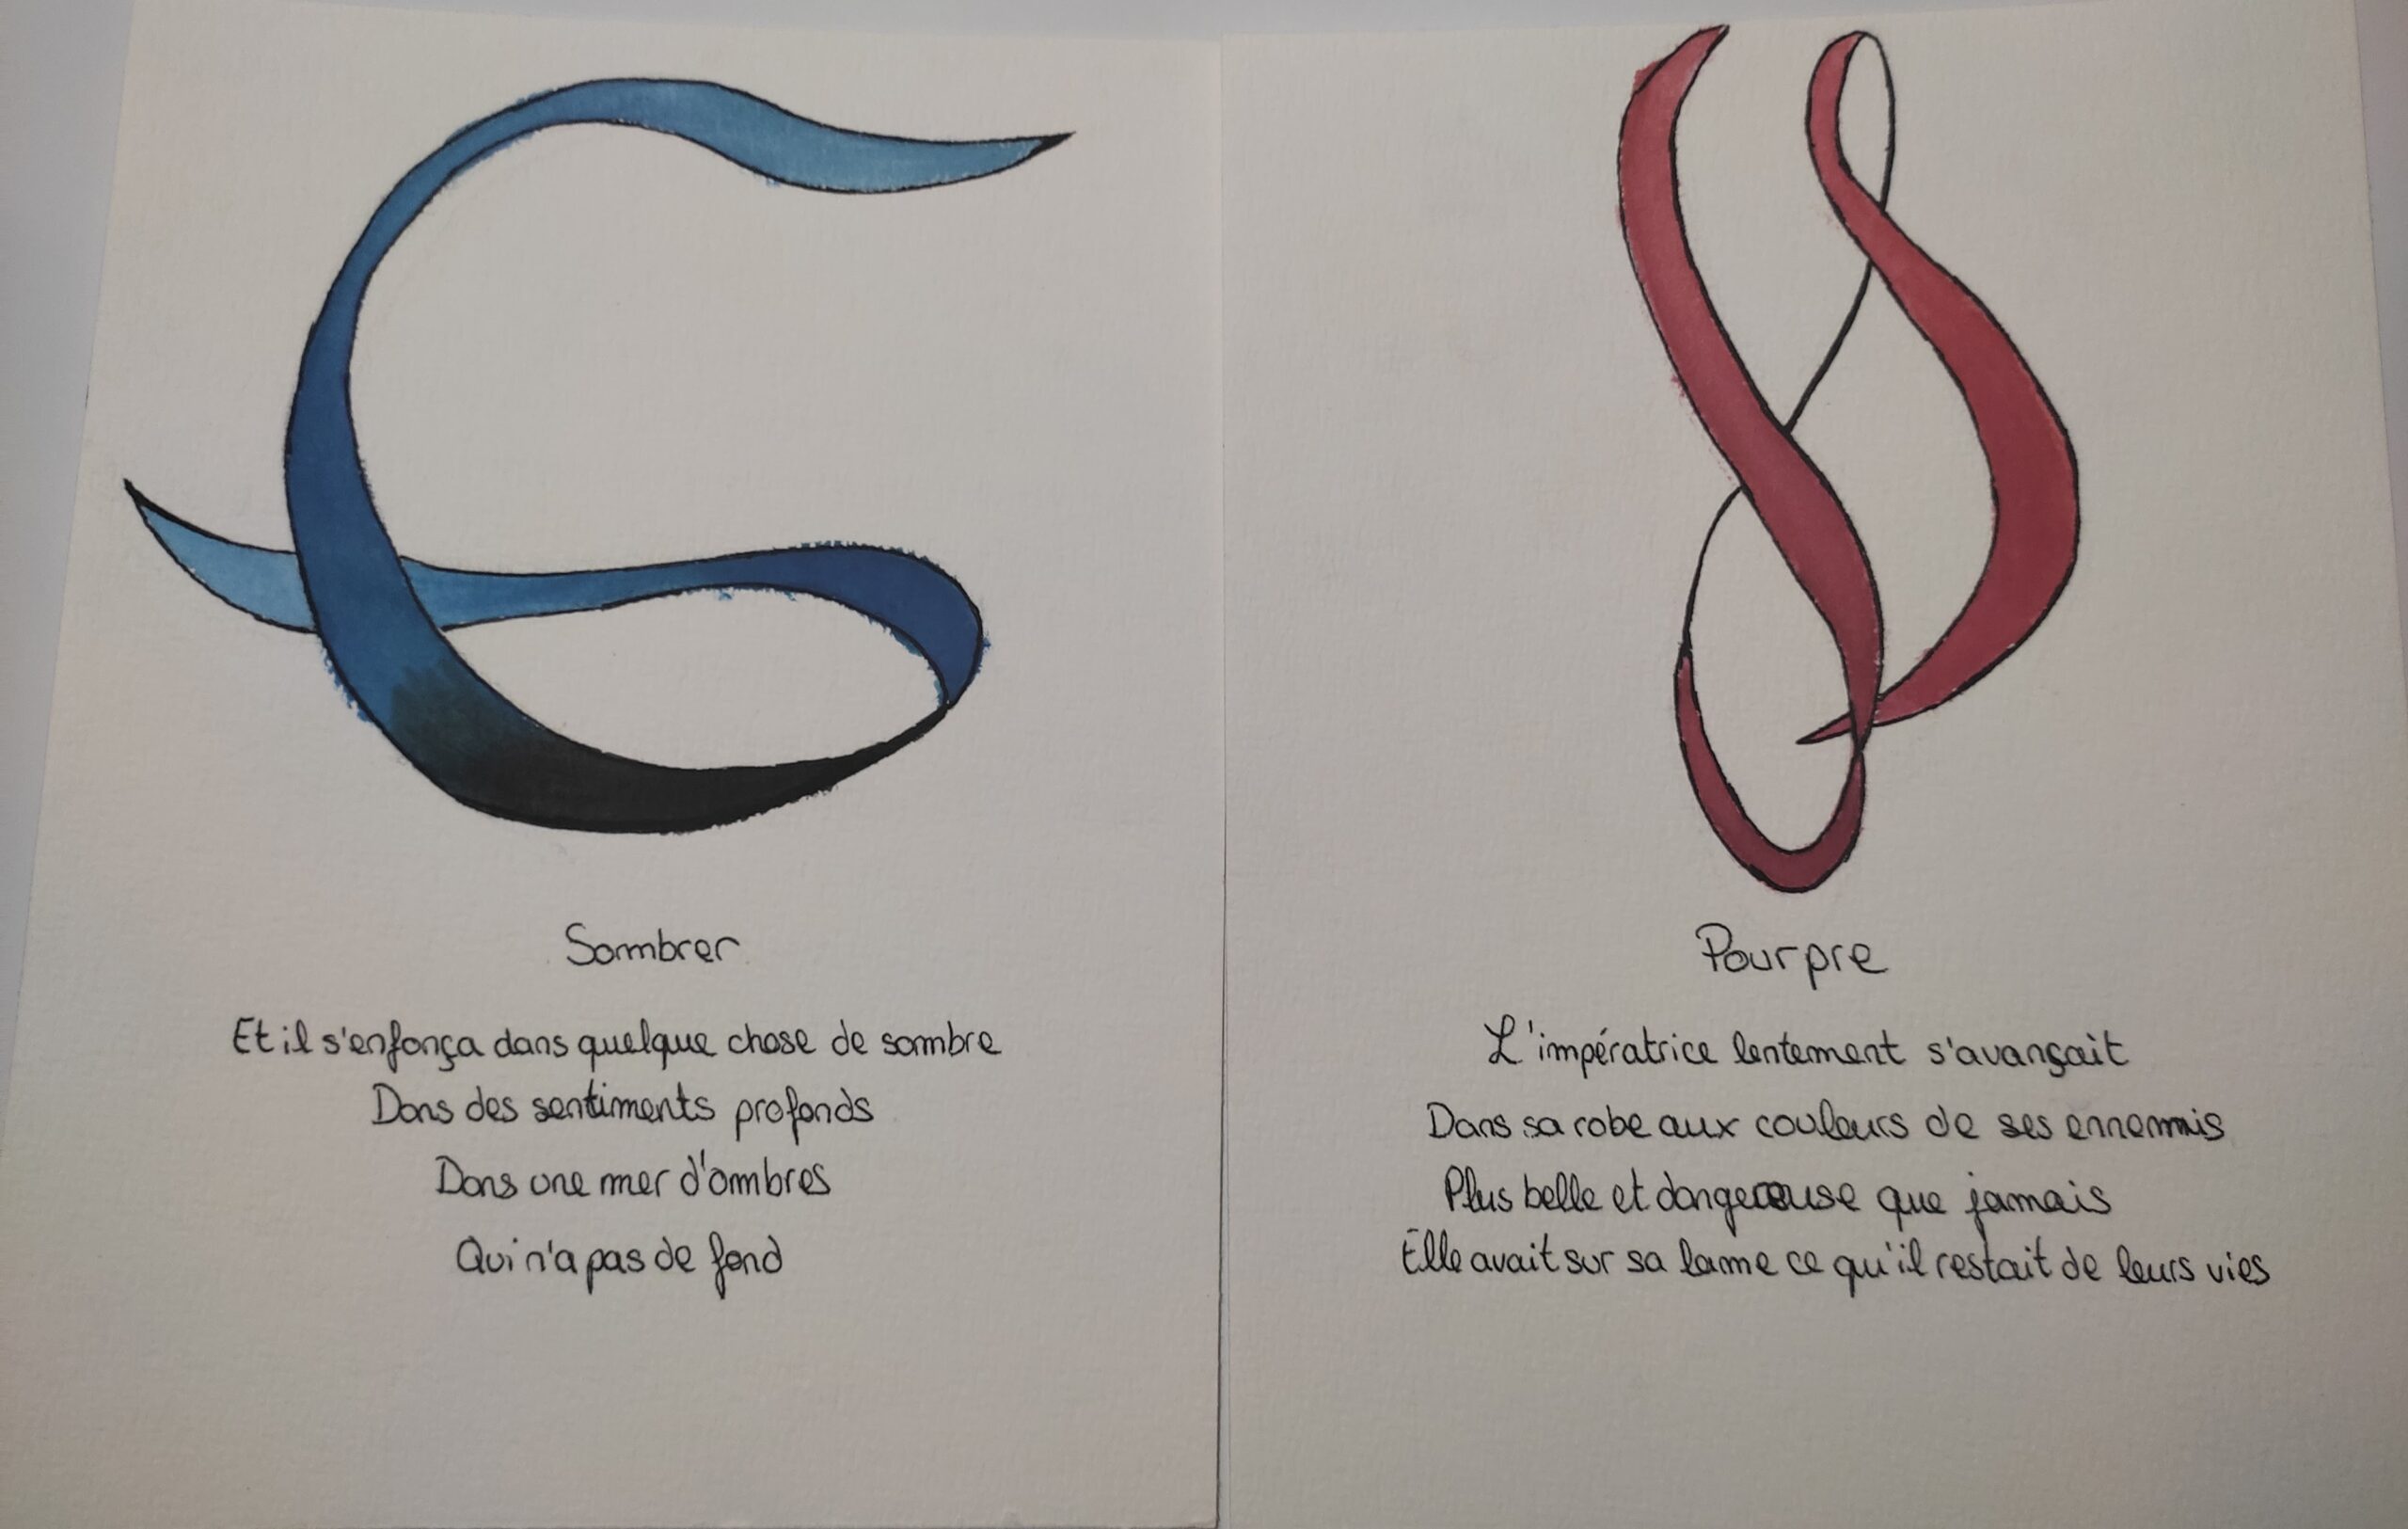 Sombrer
Et il s'enfonça dans quelque chose de sombre
Dans des sentiments profonds
Dans une mer d'ombres
Qui n'a pas de fond
Pourpre
L'impératrice lentement s'avançait
Dans sa robe aux couleurs de ses ennemis
Plus belle et dangereuse que jamais
Elle avait sur sa lame ce qu'il restait de leurs vies